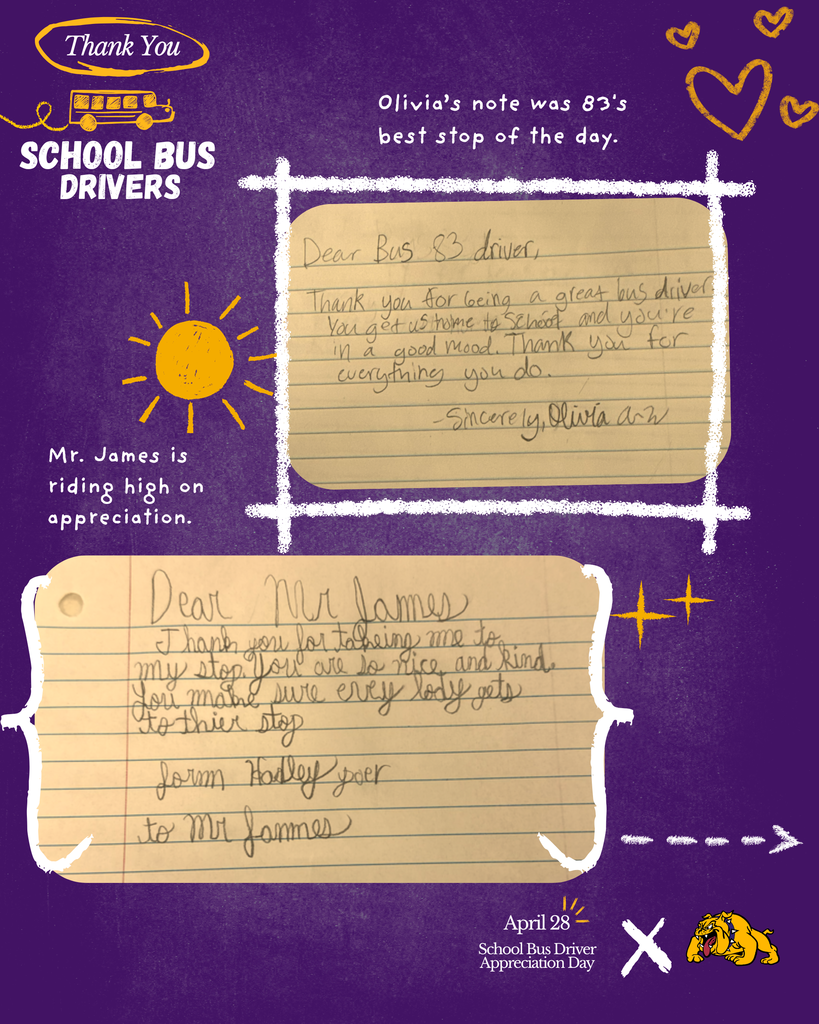 Thank You
SCHOOL BUS
DRIVERS
Olivia's note was 83's
best stop of the day.
Dear Bus 83 driver,
Thank you for being a great bus driver.
You get us home to School and you're
in a good mood. Thank you for
everything you do.
-Sincerely, Olivia a-w
Mr. James is
riding high on
appreciation.
Dear Mr James
Thank you for takeing me to
my stop. You are so nice and kind.
You make sure evry body gets
to thier stop
form Hadley
to Mr Jammes
April 28
School Bus Driver
Appreciation Day